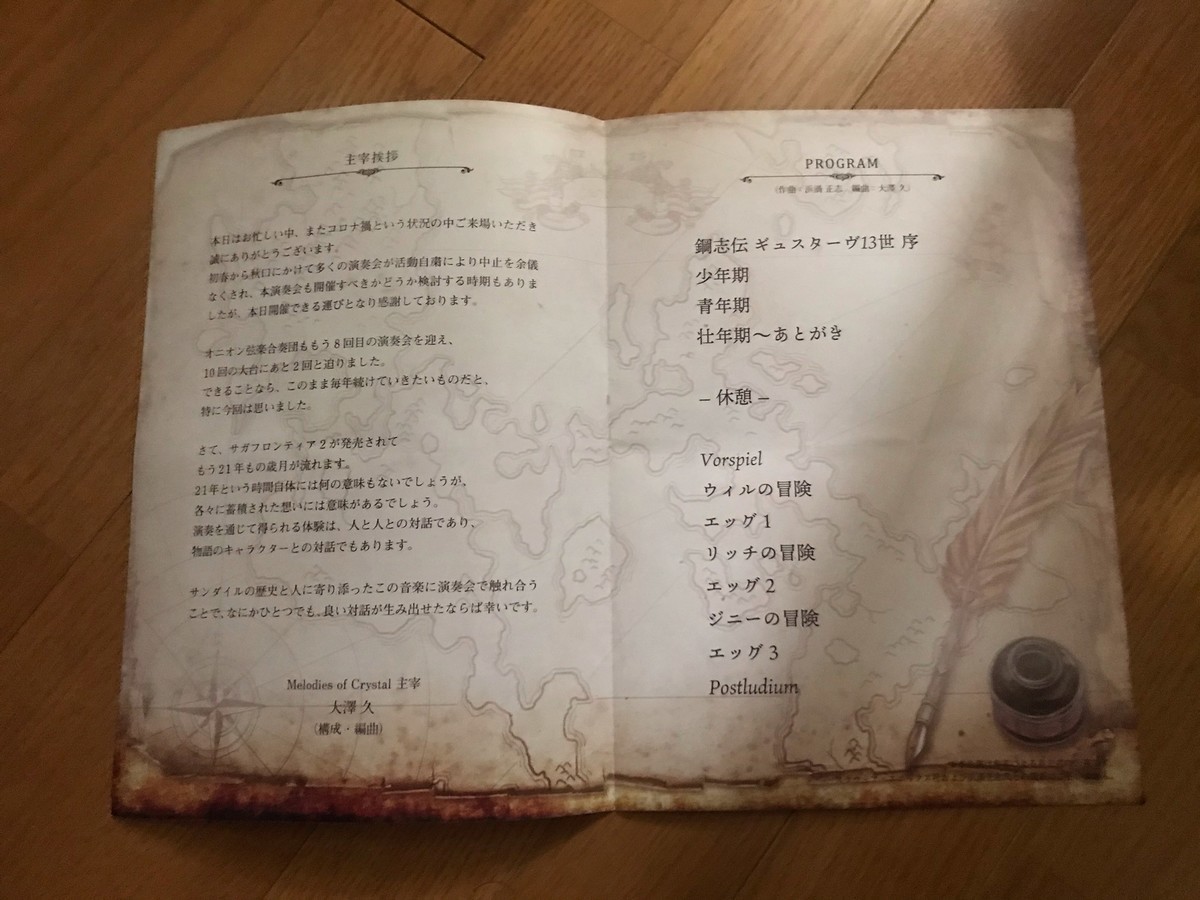 主宰挨拶
本日はお忙しい中、またコロナ禍という状況の中ご来場いただき
誠にありがとうございます。
初春から秋口にかけて多くの演奏会が活動自粛により中止を余儀
なくされ、本演奏会も開催すべきかどうか検討する時期もありま
したが、本日開催できる運びとなり感謝しております。
オニオン弦楽合奏団ももう8回目の演奏会を迎え、
10回の大台にあと2回と迫りました。
できることなら、このまま毎年続けていきたいものだと、
特に今回は思いました。
さて、サガフロンティア2が発売されて
もう21年もの歳月が流れます。
21年という時間自体には何の意味もないでしょうが、
各々に蓄積された想いには意味があるでしょう。
演奏を通じて得られる体験は、人と人との対話であり、
物語のキャラクターとの対話でもあります。
サンダイルの歴史と人に寄り添ったこの音楽に演奏会で触れ合う
ことで、なにかひとつでも、良い対話が生み出せたならば幸いです。
Melodies of Crystal 主宰
大澤 久
(構成・編曲)
PROGRAM
(作曲：浜渦 正志 編曲：大澤 久)
鋼志伝 ギュスターヴ13世 序
少年期
青年期
壮年期～あとがき
– 休憩 –
Vorspiel
ウィルの冒険
エッグ1
リッチの冒険
エッグ2
ジニーの冒険
エッグ3
Postludium